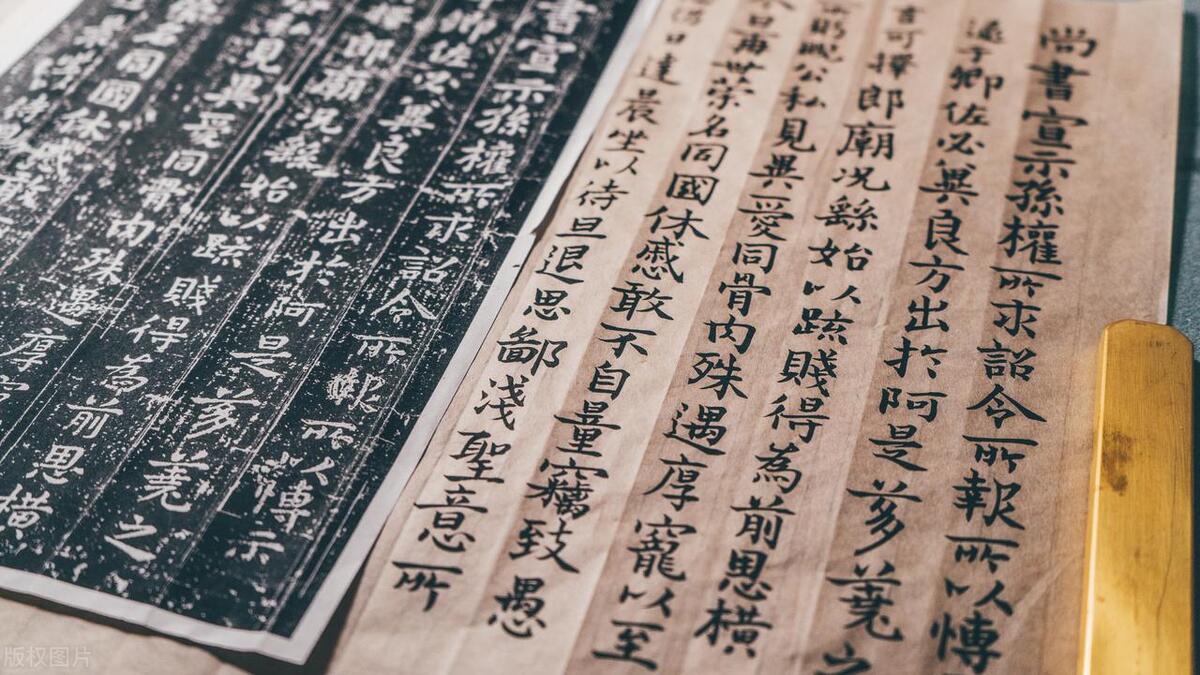 尚書宣示孫權所求詔令所報所以博
逮于卿佐必異良方出於阿是芻蕘之
言可擇郎廟況繇始以疏賤得為前恩橫
眄公私見異愛同骨肉殊遇厚寵以至
旦再世榮名同國休慼敢不自量竊致愚
日達晨坐以待旦退思鄙淺聖意所
書宣示孫權所求詔令所報所以博示
卿佐必異良方出於阿是芻蕘之
郎廟況繇始以疏賤得為前恩橫
私見異愛同骨肉殊遇厚
名同國休慼敢
版权图片